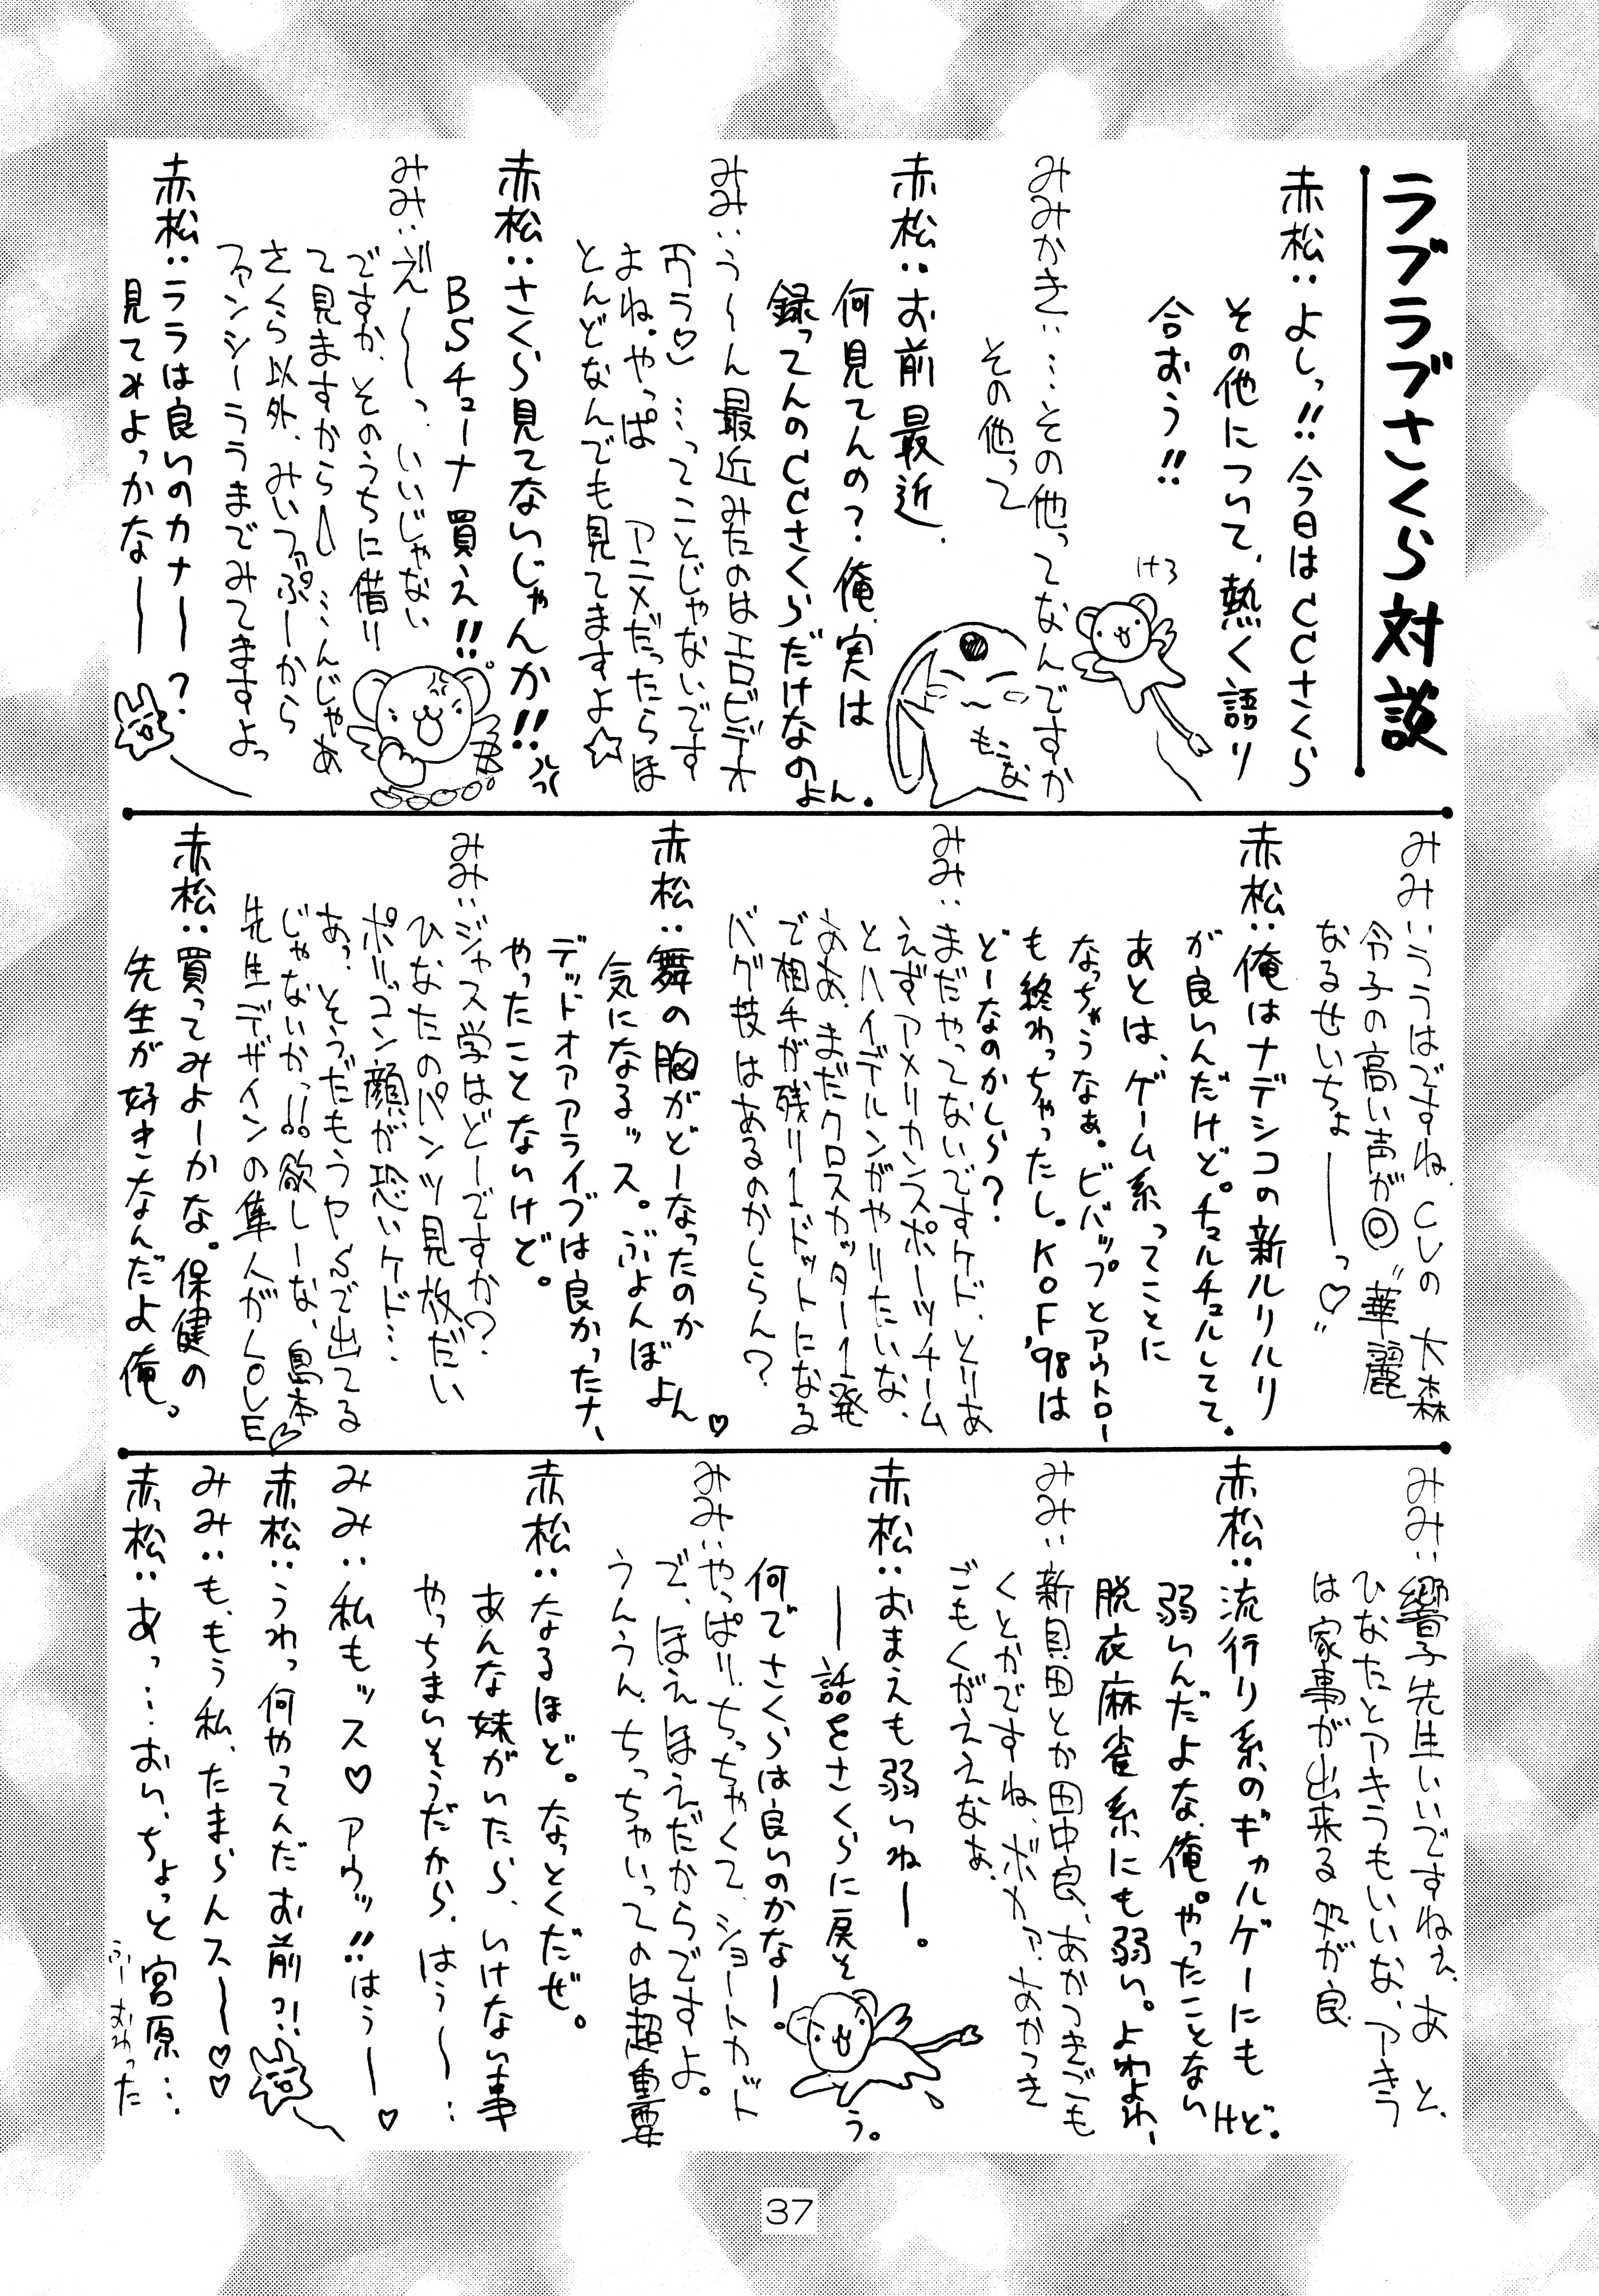 ラブラブさくら対談
赤松:よしっ!!今日はCCさくら
その他について、熱く語り
合おう!!
みみかき:…その他ってなんですか
その他って
けろ
もこな
赤松:お前最近、
何見てんの?俺、実は
録ってんのCCさくらだけなのよん。
みみ:う〜ん最近みたのはエロビデオ
…ってことじゃないです
よね。やっぱ アニメだったらほ
とんどなんでも見てますよ☆
赤松:さくら見てないじゃんか!!
BSチューナ買え!!
みみ:え〜っ、いいじゃない
ですか、そのうちに借り
て見ますから…んじゃあ
さくら以外、みいファぷーから
ファンシーララまでみてますよっ
赤松:ララは良いのカナー?
見てみよっかなー
みみ:ララはですね、CVの 大森
令子の高い声が◎"華麗
なるせいちょーっ♡"
赤松:俺はナデシコの新ルリルリ
が良いんだけど。チュルチュルしてて。
あとは、ゲーム系ってことに
なっちゃうなぁ。ビバップとアウトロー
も終わっちゃったし。KOF'98は
どーなのかしら?
みみ:まだやってないですケド、とりあ
えずアメリカンスポーツチーム
とハイデルンがやりたいな、
ああ、まだクロスカッター1発
で相手が残り1ドットになる
バグ技はあるのかしらん?
赤松:舞の胸がどーなったのか
気になるッス。ぷよんぼよん♡
デッドオアアライブは良かったナ、
やったことないけど。
みみ:ジャス学はどーですか?
ひなたのパンツ見放だい
ポリゴン顔が恐いケド…
あっ、そうだもうヤSで出てる
じゃないかっ!!欲しーな、島本
先生デザインの隼人がLOVE♡
赤松:買ってみよーかな。保健の
先生が好きなんだよ俺。
みみ:響子先生いいですねぇ、あと、
ひなたとアキラもいいな、アキラ
は家事が出来る処が良
赤松:流行り系のギャルゲーにも
弱いんだよな、俺。やったことないけど。
脱衣麻雀系にも弱い。よわよわ、
みみ:新貝田とか田中良、あかつきごも
くとかですね、ボカァ、あかつき
ごもくがええなぁ、
赤松:おまえも弱いねー。
ー話をさくらに戻そう。
何でさくらは良いのかなー。
みみ:やっぱり、ちっちゃくて、ショートカット
で、ほえほえだからですよ。
うんうん、ちっちゃいってのは超重要
赤松:なるほど。なっとくだぜ。
あんな妹がいたら、いけない事
やっちまいそうだから、はぅ〜…
みみ:私もッス♡アウッ!!はぅー♡
赤松:うわっ何やってんだお前?!
みみ:も、もう私、たまらんス〜♡♡
赤松:あっ…おい、ちょっと宮原…
ふーおわった
37